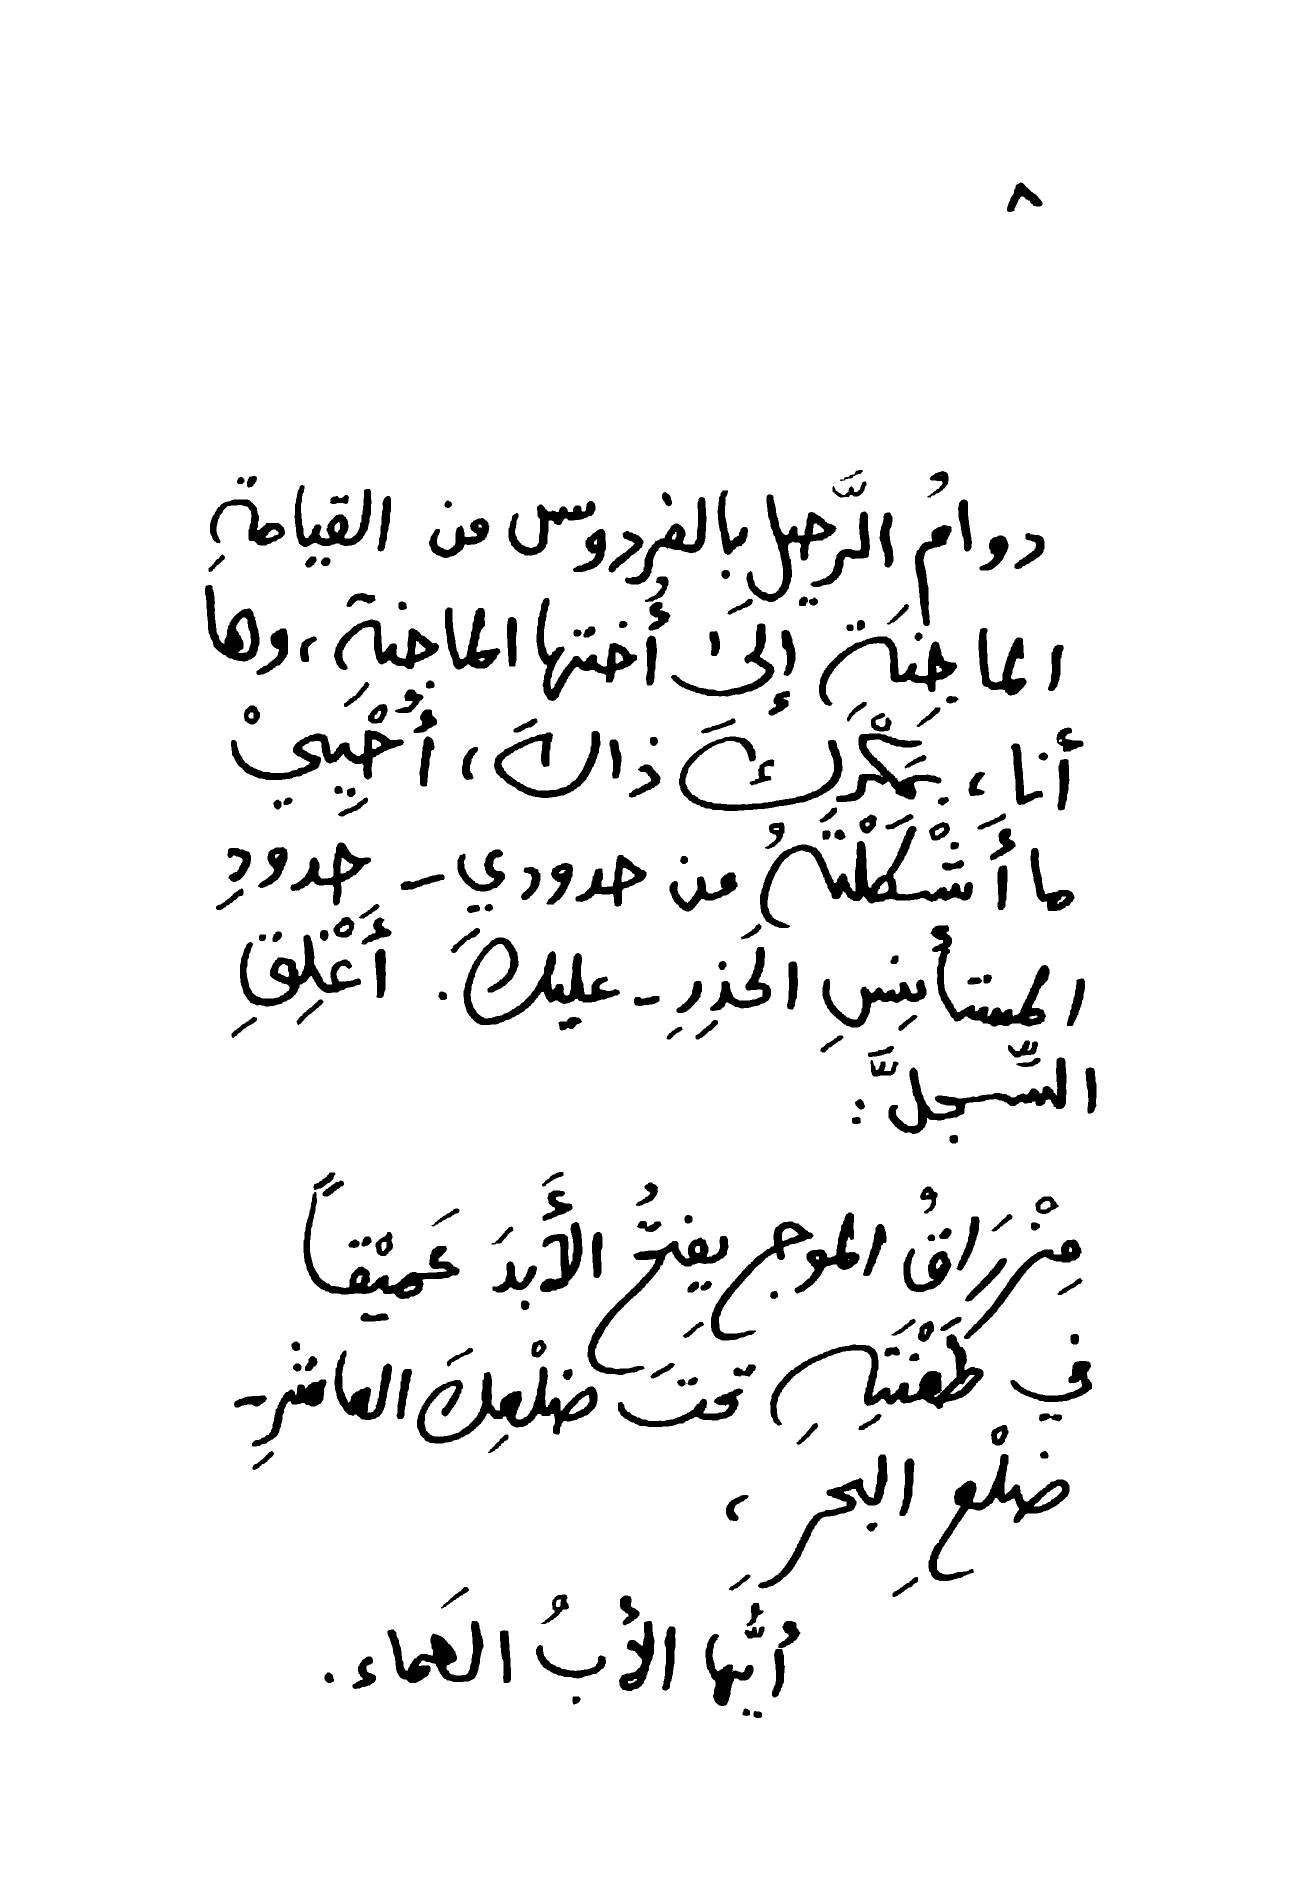 ٨
دوامُ الرَّحيل بالفردوس من القيامةِ
الماجِنَةِ إلىَ أُختها الماجنةِ، وها
أنا، بِمَكْرِكَ ذاكَ، أُحْيِيْ
ما أَشْكَلْتَهُ من حدودي - حدودِ
المستأنِسِ الحَذِرِ - عليكَ. أَغْلِقِ
السِّجلَّ:
مِزْرَاقُ الموجِ يفتحُ الأَبدَ عَميْقاً
في طَعْنَتِهِ تحتَ ضلْعِكَ العاشرِ -
ضلْعِ البحرِ،
أيُّها الأبُ العَماء.